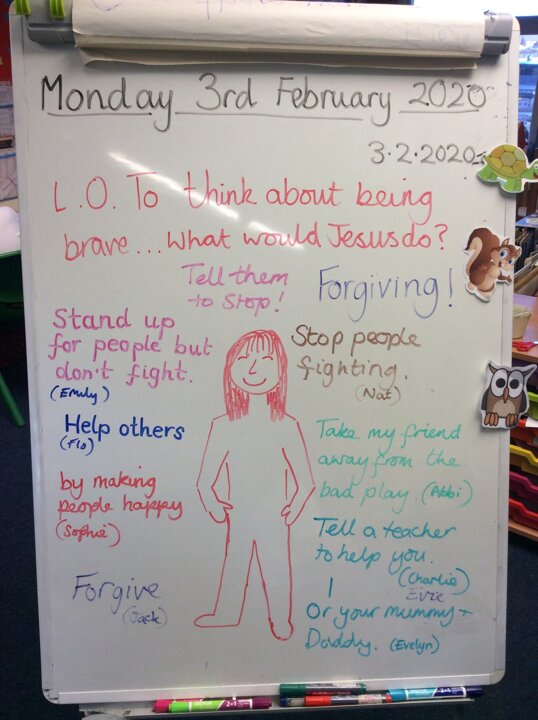 Monday 3rd February 2020
3.2.2020
L.O. To think about being
brave... What would Jesus do?
Tell them
to stop!
Forgiving!
Stand up
for people but
don't fight.
(Emily)
Stop people
fighting.
(Nat)
Help others
(Flo)
Take my friend
away from the
bad play. (Abbi)
by making
people happy
(Sophie)
Tell a teacher
to help you.
(Charlie)
Evie
Forgive
(Jack)
Or your mummy +
Daddy. (Evelyn)